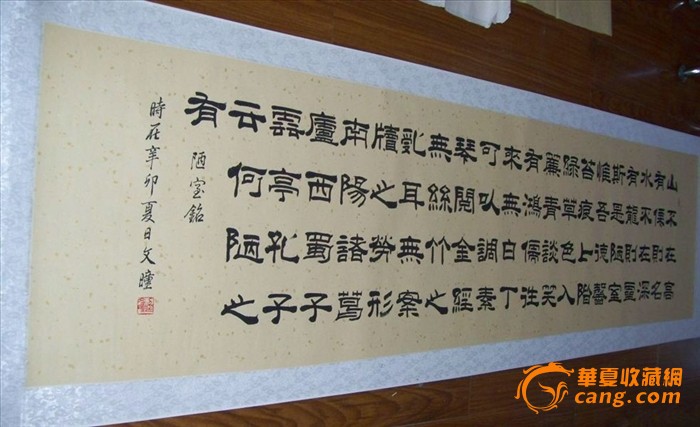 山不在高
有僊則名
水不在深
有龍則靈
斯是陋室
惟吾德馨
苔痕上階
綠草色入
簾青談笑
有鴻儒往
來無白丁
可以調素
琴閱金經
無絲竹之
亂耳無案
牘之勞形
南陽諸葛
廬西蜀子
雲亭孔子
云何陋之
有
陋室銘
時在辛卯夏日文
華夏收藏網
cang.com